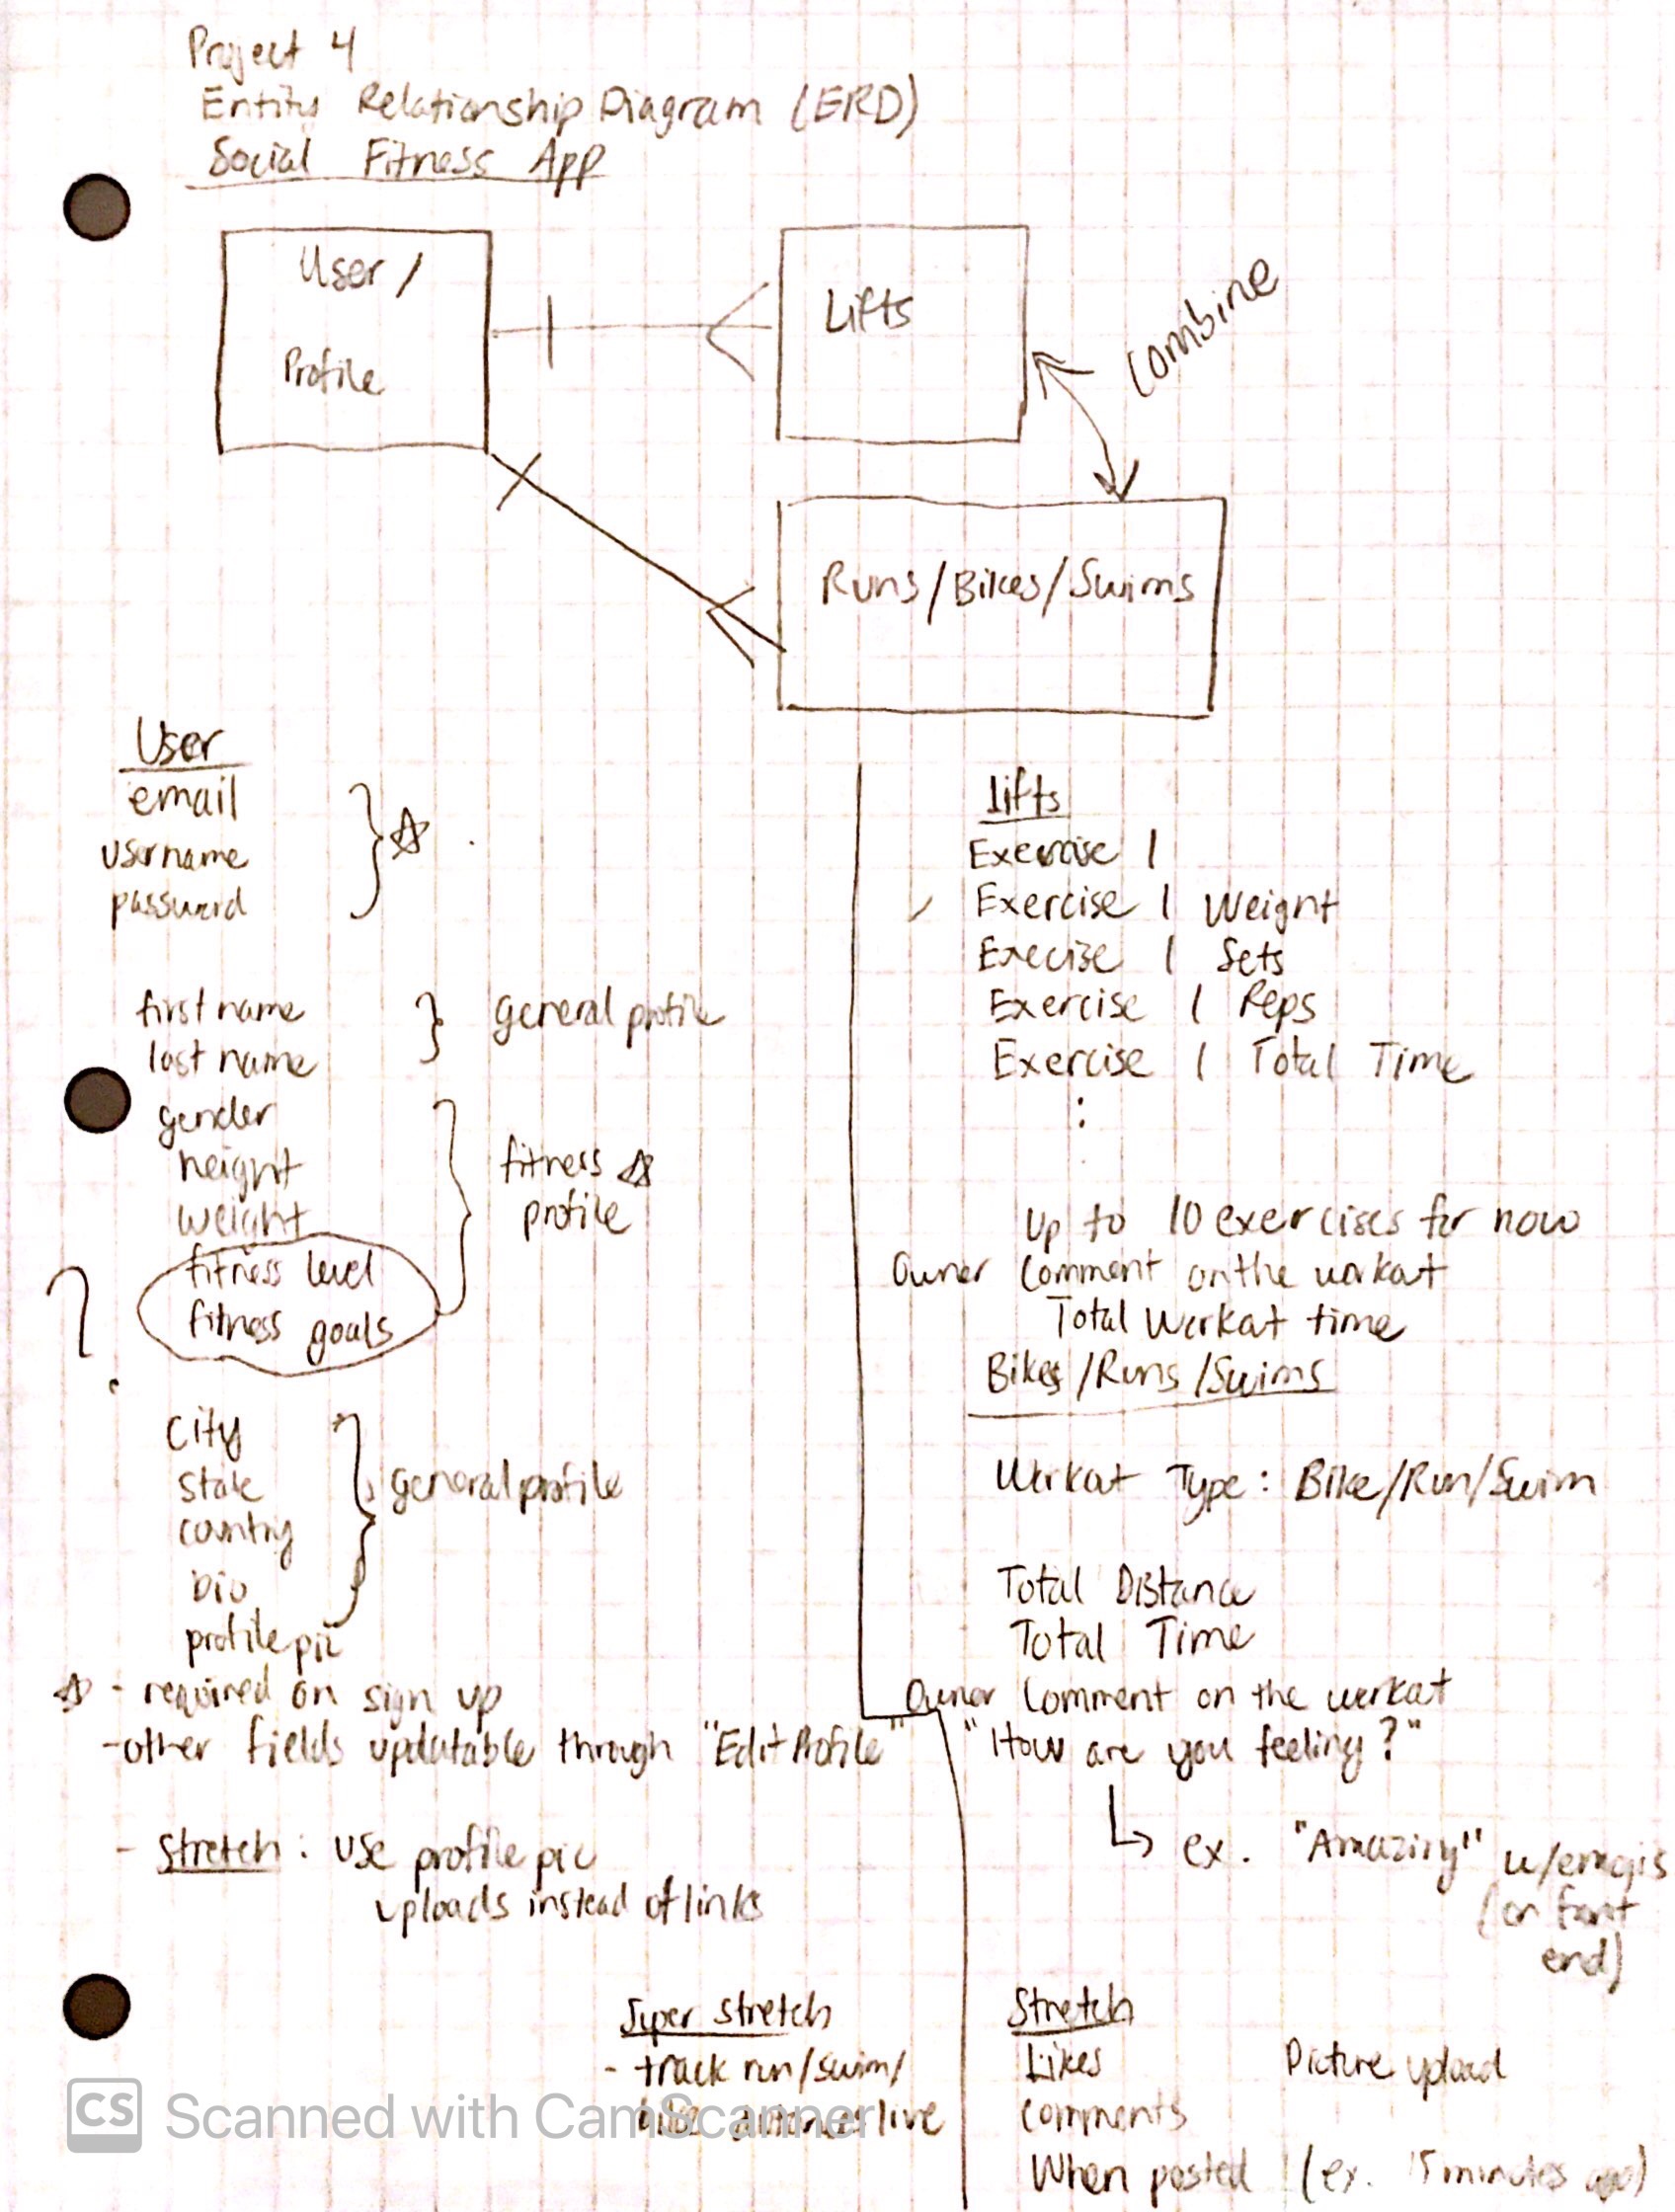 Project 4
Entity Relationship Diagram (ERD)
Social Fitness App
User /
Profile
Lifts
Combine
Runs/Bikes/Swims
User
email
username
password
first name
last name
general profile
gender
height
weight
fitness level
fitness goals
fitness
profile
?
city
state
country
bio
profile pic
general profile
☆ - required on sign up
- other fields updatable through "Edit Profile"
- Stretch: use profile pic
uploads instead of links
Super stretch
- track run/swim/
bike distances live
Lifts
Exercise 1
Exercise 1 Weight
Execise 1 Sets
Exercise 1 Reps
Exercise 1 Total Time
:
Up to 10 exercises for now
Owner Comment on the workout
Total Workout time
Bikes/Runs/Swims
Workout Type: Bike/Run/Swim
Total Distance
Total Time
Owner Comment on the workout
"How are you feeling?"
ex. "Amazing" w/emojis
(on front
end)
Stretch
Likes
Picture upload
comments
When posted (ex. 15 minutes ago)
CS Scanned with CamScanner